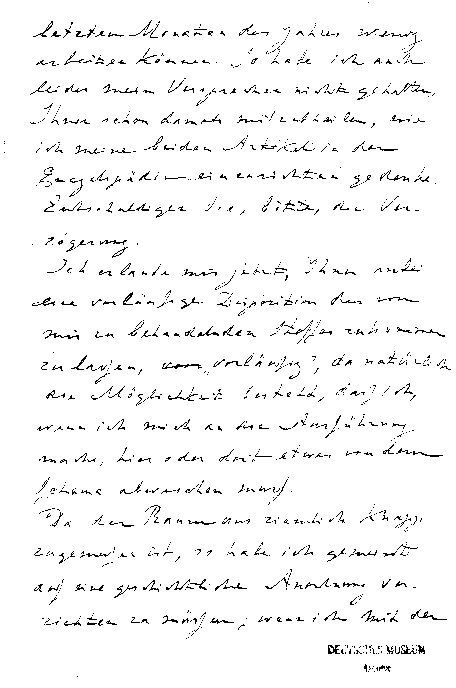 letzten Monaten des Jahres wenig
arbeiten können. So habe ich auch
leider mein Versprechen nicht gehalten,
Ihnen schon damals mitzutheilen, wie
ich meine beiden Artikel in der
Encyclopädie einzurichten gedenke.
Entschuldigen Sie, bitte, die Ver-
zögerung.
Ich erlaube mir jetzt, Ihnen anbei
eine vorläufige Disposition des von
mir zu behandelnden Stoffes zukommen
zu lassen, „vorläufig", da natürlich
die Möglichkeit besteht, daß ich,
wenn ich mich an die Ausführung
mache, hier oder dort etwas von dem
Schema abweichen muß.
Da der Raum uns ziemlich knapp
zugemessen ist, so habe ich gemeint
auf eine geschichtliche Anordnung ver-
zichten zu müssen; wenn ich mit der
DEUTSCHES MUSEUM